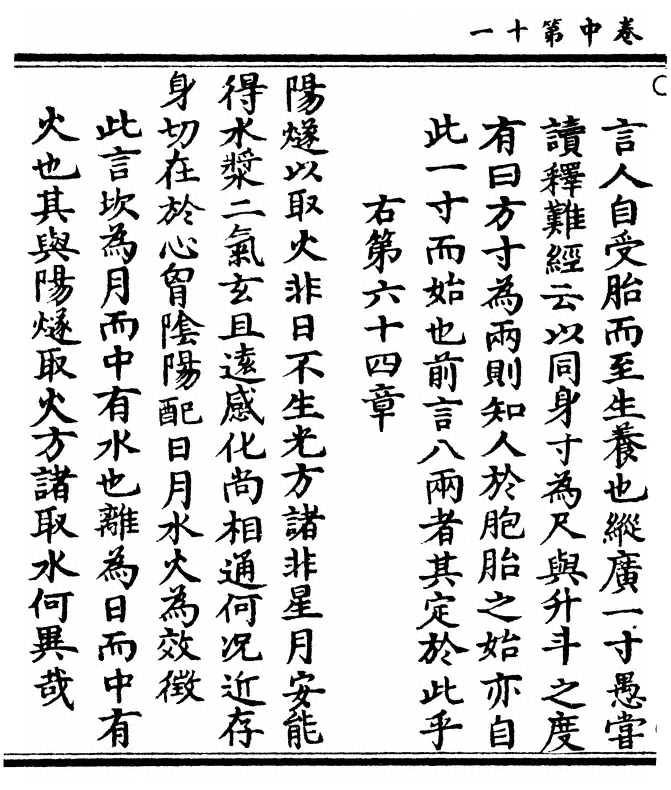 卷中第十一
言人自受胎而至生養也縱廣一寸愚嘗
讀釋難經云以同身寸為尺與升斗之度
有曰方寸為兩則知人於胞胎之始亦自
此一寸而始也前言八兩者其定於此乎
右第六十四章
陽燧以取火非日不生光方諸非星月安能
得水漿二氣玄且遠感化尚相通何況近存
身切在於心胷陰陽配日月水火為效徵
此言坎為月而中有水也離為日而中有
火也其與陽燧取火方諸取水何異哉